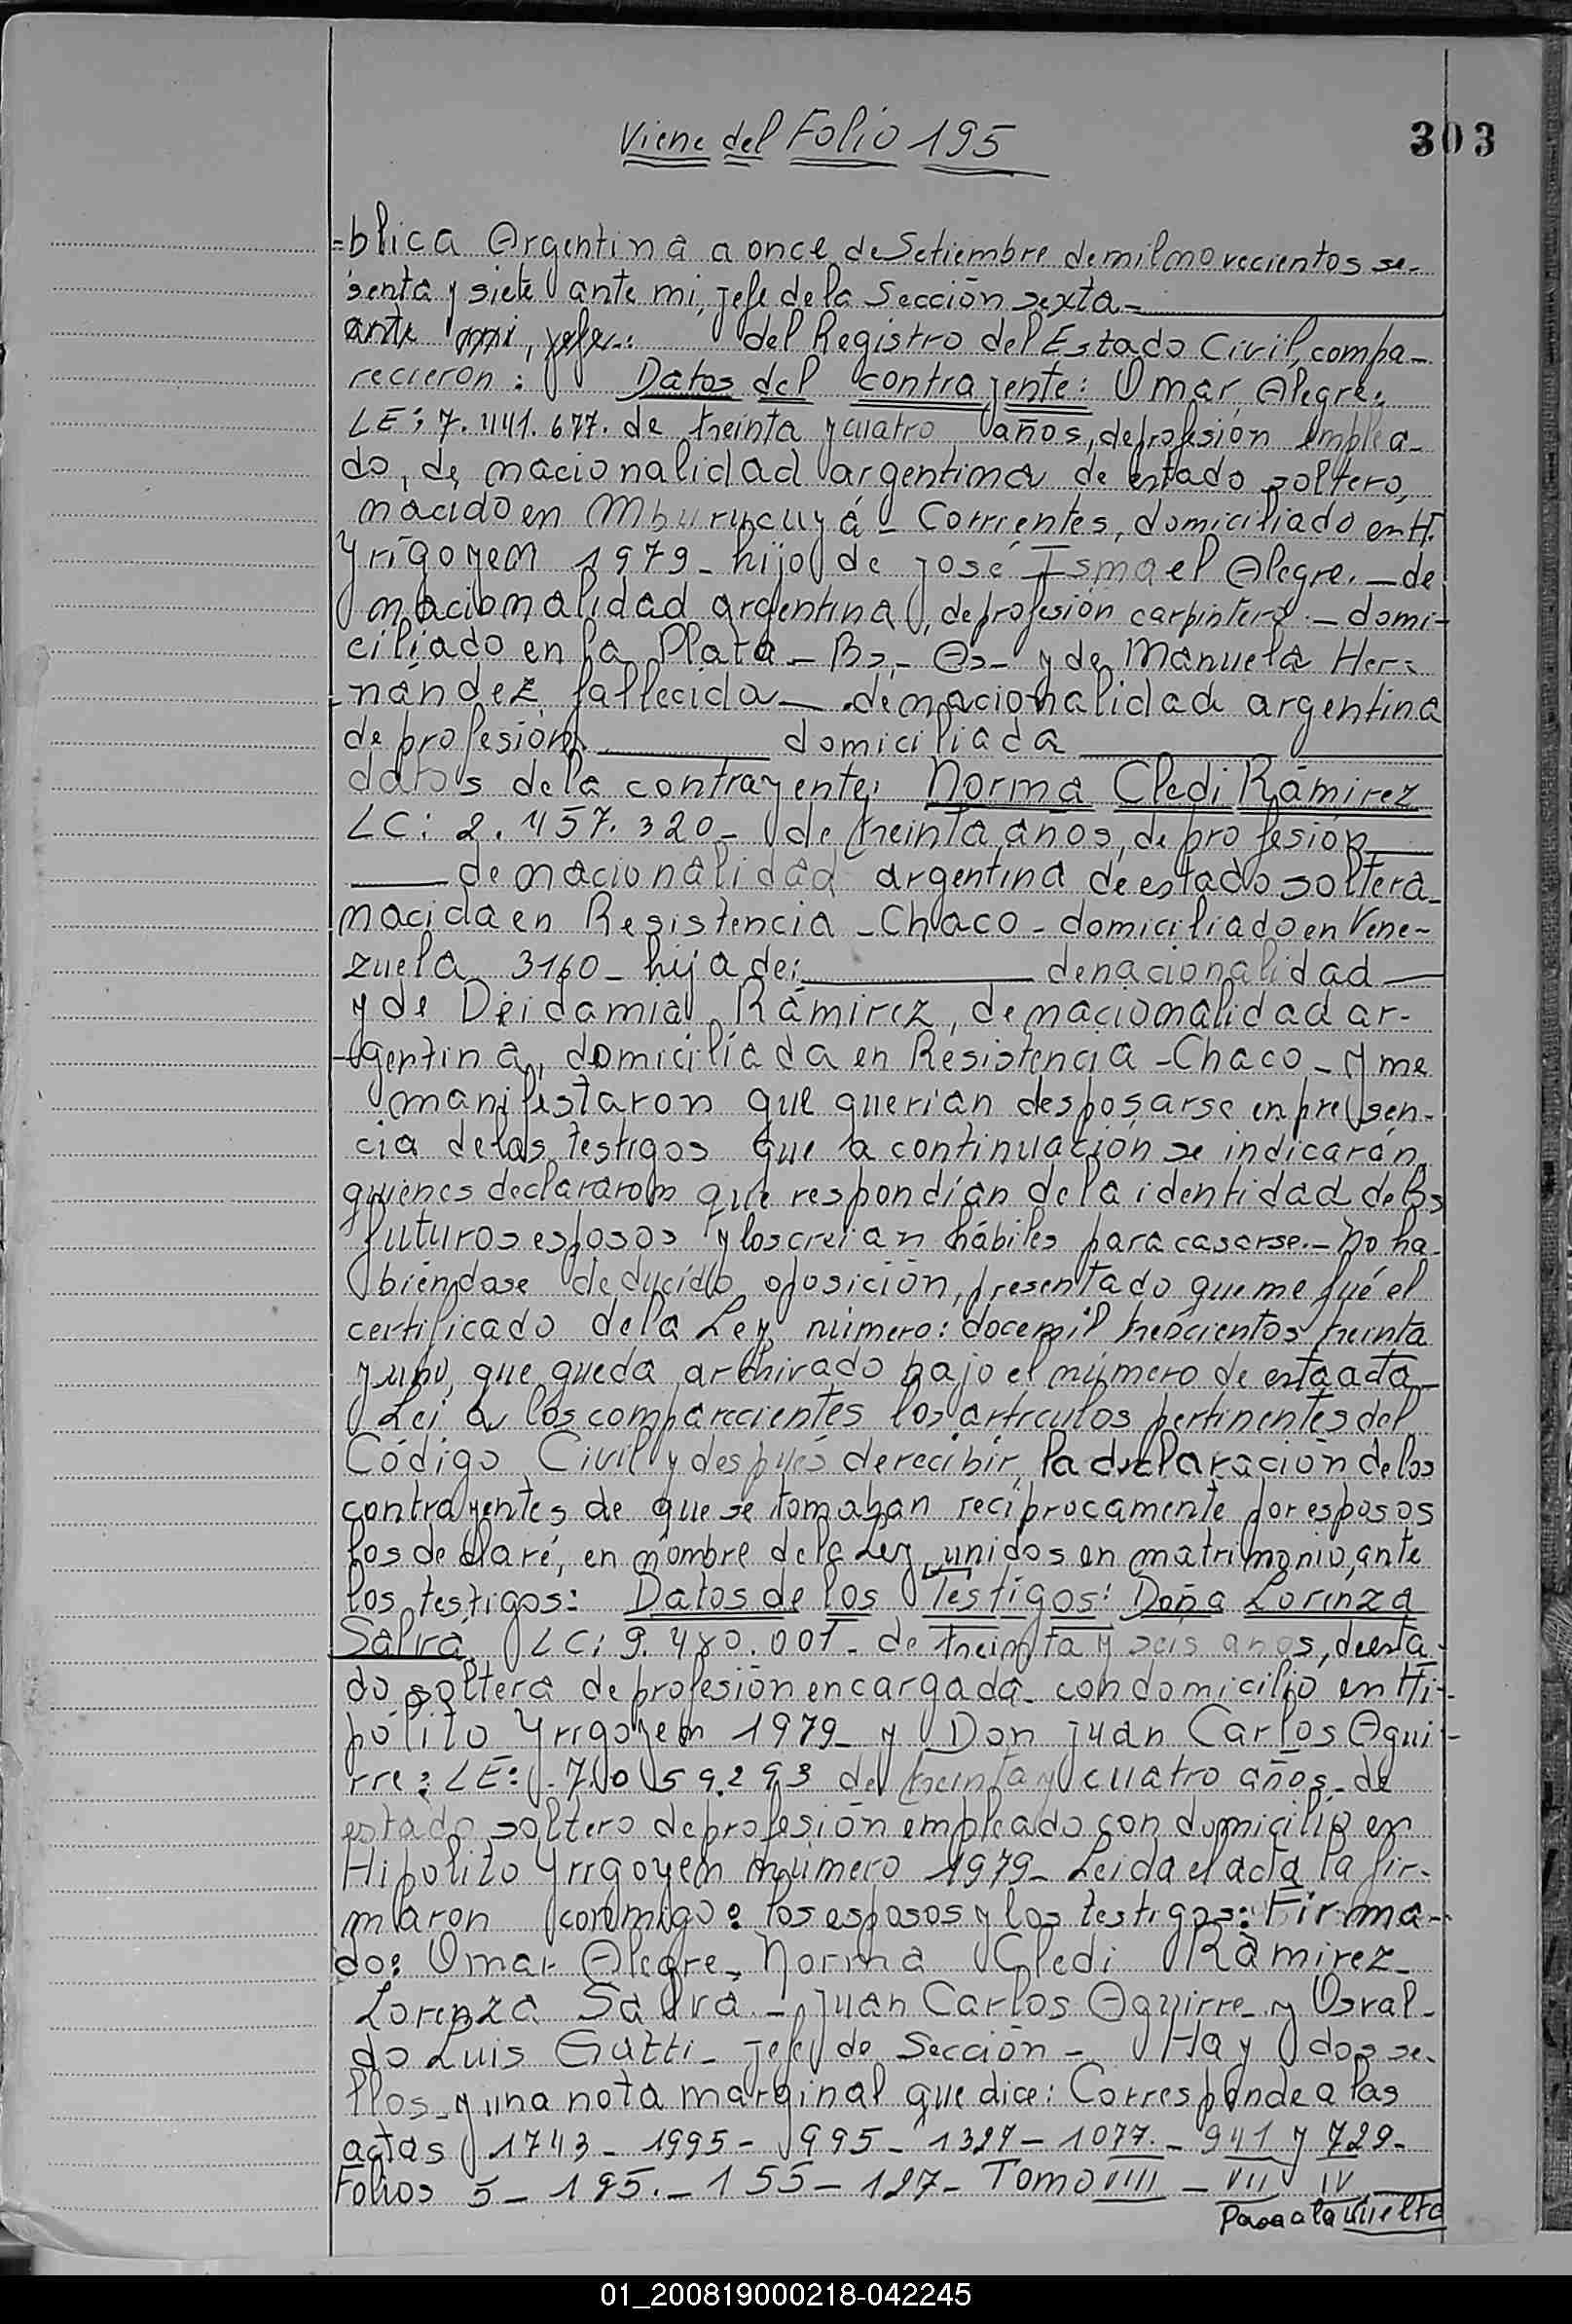 Viene del Folio 195
303
=blica Argentina a once de Setiembre de mil novecientos se-
senta y siete ante mi, jefe de la Sección sexta-
ante mi, jefe.: del Registro del Estado Civil, compa-
recieron: Datos del contrayente: Omar Alegre.
LE: 7.441.677. de treinta y cuatro años, de profesión emplea-
do, de nacionalidad argentina de estado soltero,
nacido en Mburucuyá - Corrientes, domiciliado en H.
Yrigoyen 1979 - hijo de José Ismael Alegre. - de
nacionalidad argentina, de profesión carpintero. - domi-
ciliado en la Plata - Bs.- As - y de Manuela Her=
=nández fallecida - de nacionalidad argentina
de profesión domiciliada
datos de la contrayente: Norma Cledi Rámirez
LC: 2.457.320 - de treinta años, de profesión
de nacionalidad argentina de estado soltera
nacida en Resistencia - Chaco - domiciliado en Vene-
zuela 3160 - hija de: de nacionalidad
y de Deidamia Rámirez, de nacionalidad ar-
-gentina, domiciliada en Resistencia - Chaco - y me
manifestaron que querian desposarse en presen-
cia de los testigos que a continuación se indicarán,
quienes declararon que respondían de la identidad de los
futuros esposos y los creian hábiles para casarse. - No ha-
biéndose deducido oposición, presentado que me fué el
certificado de la Ley número: doce mil trescientos treinta
y uno, que queda archivado bajo el número de esta acta
Lei a los comparecientes los artículos pertinentes del
Código Civil y después de recibir la declaración de los
contrayentes de que se tomaban recíprocamente por esposos
los declaré, en nombre de la Ley, unidos en matrimonio, ante
los testigos: Datos de los Testigos: Doña Lorenza
Salvá LC: 9.480.001 - de treinta y seis años, de esta-
do soltera de profesión encargada - con domicilio en Hi-
pólito Yrigoyen 1979 - y Don Juan Carlos Agui-
rre: LE: 7.059.293 de treinta y cuatro años - de
estado soltero de profesión empleado con domicilio en
Hipolito Yrigoyen número 1979 - Leida el acta la fir-
maron conmigo: los esposos y los testigos: Firma-
do: Omar Alegre - Norma Cledi Rámirez -
Lorenza Salvá - Juan Carlos Aguirre - y Osval-
do Luis Gatti - jefe de Sección - Hay dos se-
llos y una nota marginal que dice: Corresponde a las
actas 1743 - 1995 - 995 - 1327 - 1077. - 941 y 729 -
Folios 5 - 195. - 155 - 127 - Tomo VIIII - VII IV
Pasa a la vuelta
01_200819000218-042245